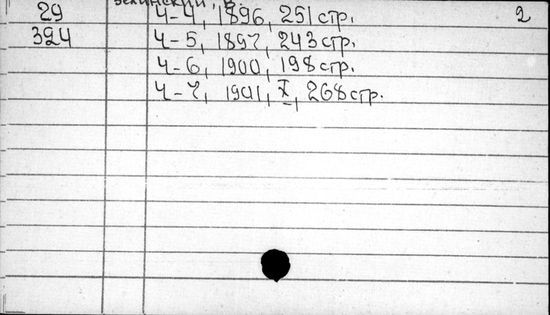 29 Ч-4, 1896, 251 стр. 2
324 Ч-5, 1897, 243 стр.
Ч-6, 1900, 198 стр.
Ч-7, 1901, X, 268 стр.